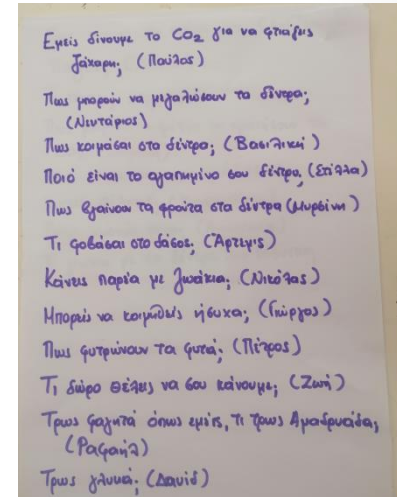 Εμείς δίνουμε το CO2 για να φτιάξεις
ζάχαρη; (Παύλος)
Πως μπορούν να μεγαλώσουν τα δέντρα;
(Νεκτάριος)
Πως κοιμάσαι στα δέντρα; (Βασιλική)
Ποιό είναι το αγαπημένο σου δέντρο; (Στέλλα)
Πως βγαίνουν τα φρούτα στα δέντρα (Μυρσίνη)
Τι φοβάσαι στο δάσος; (Άρτεμις)
Κάνεις παρέα με ζωάκια; (Νικόλας)
Μπορείς να κοιμηθείς ήσυχα; (Γιώργος)
Πως φυτρώνουν τα φυτά; (Πέτρος)
Τι δώρο θέλεις να σου κάνουμε; (Ζωή)
Τρως φαγητά όπως εμείς, τι τρως Αμαδρυάδα;
(Ραφαήλ)
Τρως γλυκά; (Δαυίδ)